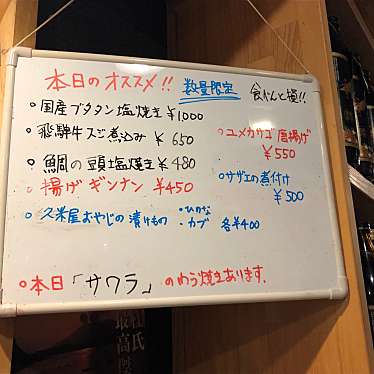 本日のオススメ!! 数量限定 食べんと損!!
国産ブタタン塩焼き ¥1000
飛騨牛スジ煮込み ¥650
鯛の頭塩焼き ¥480
揚げギンナン ¥450
久米屋おやじの漬けもの ・ひのな ・カブ 各¥400
ユメカサゴ唐揚げ ¥550
サザエの煮付け ¥500
本日「サワラ」のわら焼きあります.
氏
最高